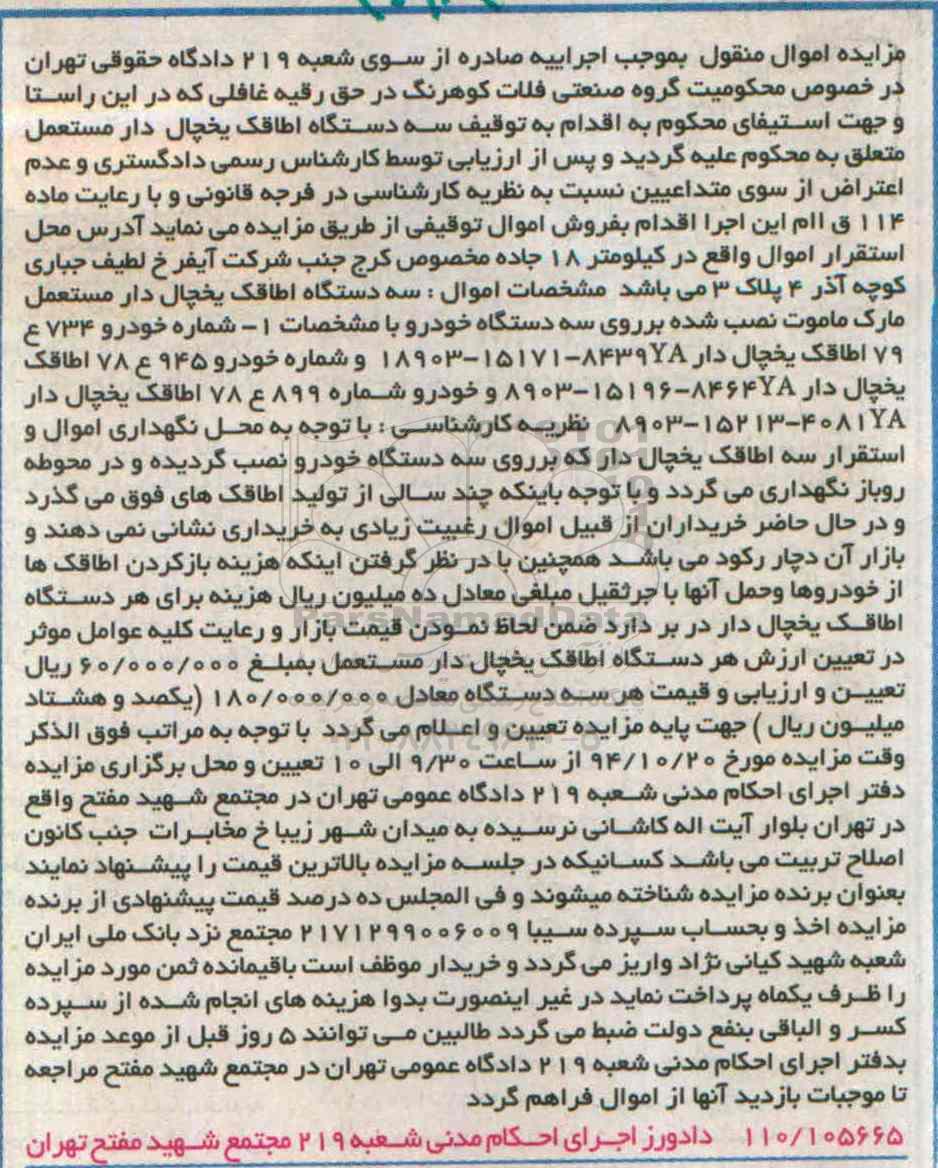 مزایده اموال منقول بموجب اجراییه صادره از سوی شعبه ۲۱۹ دادگاه حقوقی تهران
در خصوص محکومیت گروه صنعتی فلات کوهرنگ در حق رقیه غافلی که در این راستا
و جهت استیفای محکوم به اقدام به توقیف سه دستگاه اطاقک یخچال دار مستعمل
متعلق به محکوم علیه گردید و پس از ارزیابی توسط کارشناس رسمی دادگستری و عدم
اعتراض از سوی متداعیین نسبت به نظریه کارشناسی در فرجه قانونی و با رعایت ماده
۱۱۴ ق اام این اجرا اقدام بفروش اموال توقیفی از طریق مزایده می نماید آدرس محل
استقرار اموال واقع در کیلومتر ۱۸ جاده مخصوص کرج جنب شرکت آیفر خ لطیف جباری
کوچه آذر ۴ پلاک ۳ می باشد مشخصات اموال : سه دستگاه اطاقک یخچال دار مستعمل
مارک ماموت نصب شده برروی سه دستگاه خودرو با مشخصات ۱- شماره خودرو ۷۳۴ ع
۷۹ اطاقک یخچال دار ۱۸۹۰۳-۱۵۱۷۱-۸۴۳۹YA و شماره خودرو ۹۴۵ ع ۷۸ اطاقک
یخچال دار ۸۹۰۳-۱۵۱۹۶-۸۴۶۴YA و خودرو شماره ۸۹۹ ع ۷۸ اطاقک یخچال دار
۸۹۰۳-۱۵۲۱۳-۴۰۸۱YA نظریه کارشناسی : با توجه به محل نگهداری اموال و
استقرار سه اطاقک یخچال دار که برروی سه دستگاه خودرو نصب گردیده و در محوطه
روباز نگهداری می گردد و با توجه باینکه چند سالی از تولید اطاقک های فوق می گذرد
و در حال حاضر خریداران از قبیل اموال رغبیت زیادی به خریداری نشانی نمی دهند و
بازار آن دچار رکود می باشد همچنین با در نظر گرفتن اینکه هزینه بازکردن اطاقک ها
از خودروها وحمل آنها با جرثقیل مبلغی معادل ده میلیون ریال هزینه برای هر دستگاه
اطاقک یخچال دار در بر دارد ضمن لحاظ نمودن قیمت بازار و رعایت کلیه عوامل موثر
در تعیین ارزش هر دستگاه اطاقک یخچال دار مستعمل بمبلغ ۶۰/۰۰۰/۰۰۰ ریال
تعیین و ارزیابی و قیمت هر سه دستگاه معادل ۱۸۰/۰۰۰/۰۰۰ (یکصد و هشتاد
میلیون ریال ) جهت پایه مزایده تعیین و اعلام می گردد با توجه به مراتب فوق الذکر
وقت مزایده مورخ ۹۴/۱۰/۲۰ از ساعت ۹/۳۰ الی ۱۰ تعیین و محل برگزاری مزایده
دفتر اجرای احکام مدنی شعبه ۲۱۹ دادگاه عمومی تهران در مجتمع شهید مفتح واقع
در تهران بلوار آیت اله کاشانی نرسیده به میدان شهر زیبا خ مخابرات جنب کانون
اصلاح تربیت می باشد کسانیکه در جلسه مزایده بالاترین قیمت را پیشنهاد نمایند
بعنوان برنده مزایده شناخته میشوند و فی المجلس ده درصد قیمت پیشنهادی از برنده
مزایده اخذ و بحساب سپرده سیبا ۲۱۷۱۲۹۹۰۰۶۰۰۹ مجتمع نزد بانک ملی ایران
شعبه شهید کیانی نژاد واریز می گردد و خریدار موظف است باقیمانده ثمن مورد مزایده
را ظرف یکماه پرداخت نماید در غیر اینصورت بدوا هزینه های انجام شده از سپرده
کسر و الباقی بنفع دولت ضبط می گردد طالبین می توانند ۵ روز قبل از موعد مزایده
بدفتر اجرای احکام مدنی شعبه ۲۱۹ دادگاه عمومی تهران در مجتمع شهید مفتح مراجعه
تا موجبات بازدید آنها از اموال فراهم گردد
۱۱۰/۱۰۵۶۶۵ دادورز اجرای احکام مدنی شعبه ۲۱۹ مجتمع شهید مفتح تهران
ParsNamadData